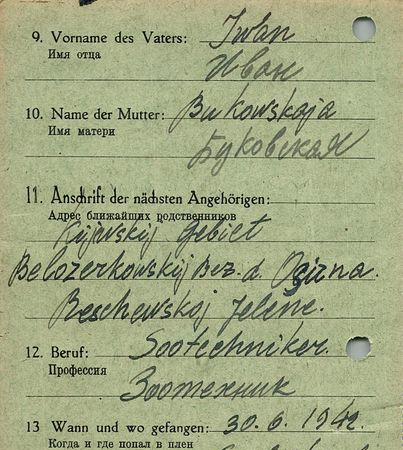 9. Vorname des Vaters: Iwan
Имя отца
Иван
10. Name der Mutter: Bukowskaja
Имя матери
Буковская
11. Anschrift der nächsten Angehörigen:
Адрес ближайших родственников
Kijewskij Gebiet
Belozerkowskij Bez. d. Osirna.
Reschewskoj Jelene.
12. Beruf: Sootechniker.
Профессия
Зоотехник
13 Wann und wo gefangen: 30.6.1942
Когда и где попал в плен